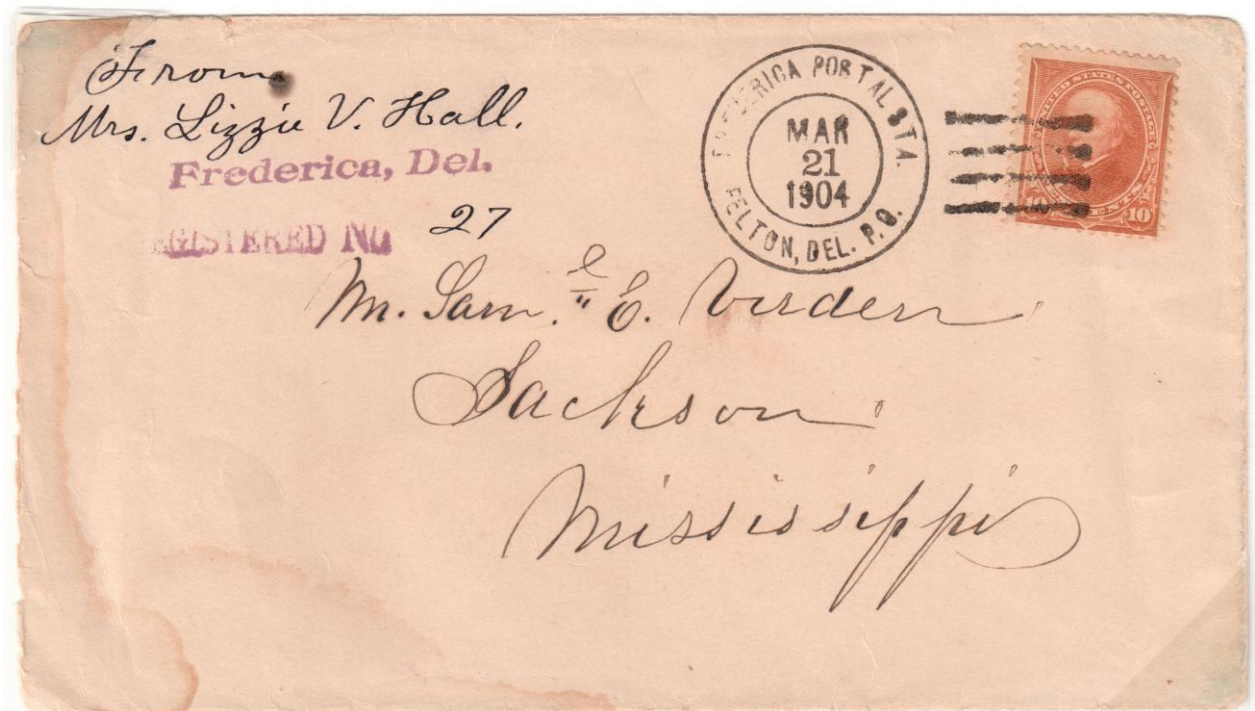 From
Mrs. Lizzie V. Hall.
Frederica, Del.
REGISTERED No 27
FREDERICA POSTAL STA.
MAR
21
1904
FELTON, DEL. P.O.
UNITED STATES POSTAGE
10 CENTS 10
Mr. Sam.l E. Virden
Jackson
Mississippi